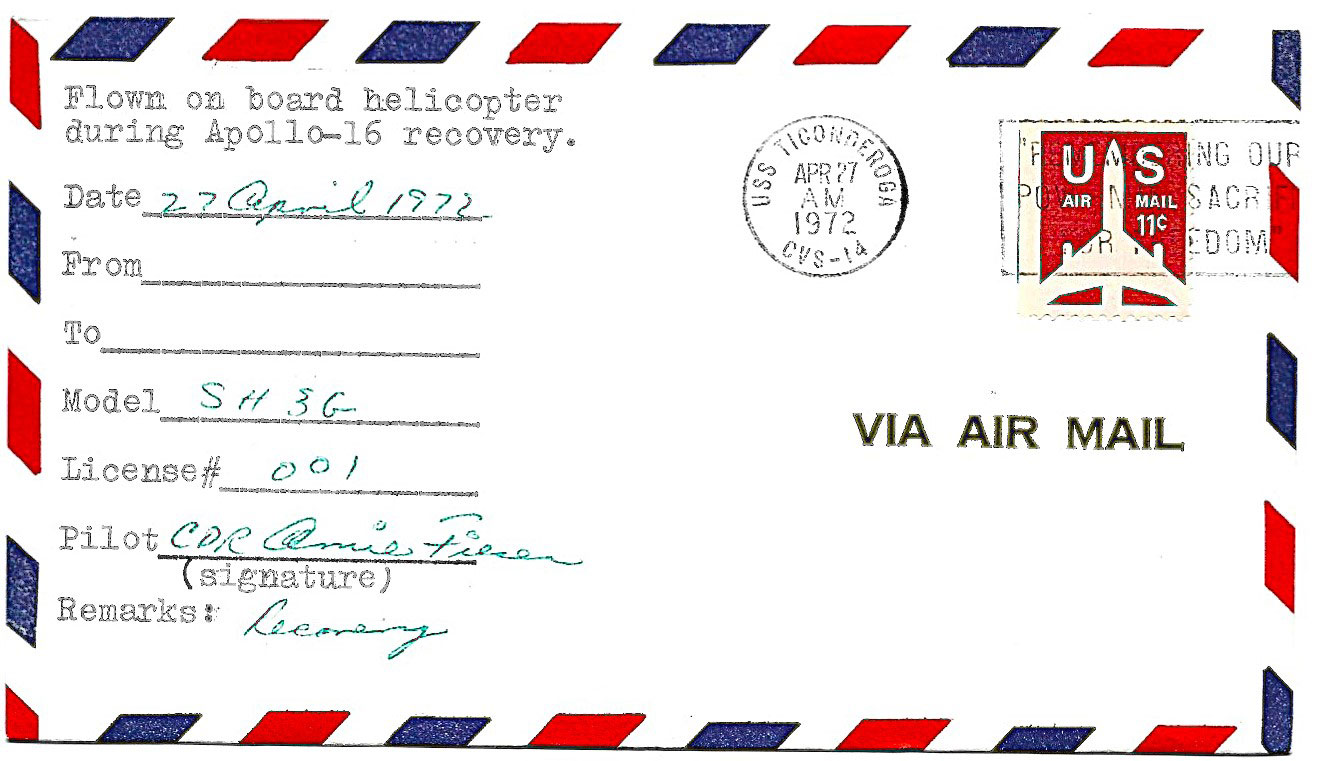 Flown on board helicopter
during Apollo-16 recovery.
Date 27 April 1972
From
To
Model SH 3G
License# 001
Pilot CDR Arnie Fieser
(signature)
Remarks: Recovery
USS TICONDEROGA
APR 27
AM
1972
CVS-14
US
AIR MAIL
11¢
ING OUR
POW SACRI
OR EDOM"
VIA AIR MAIL